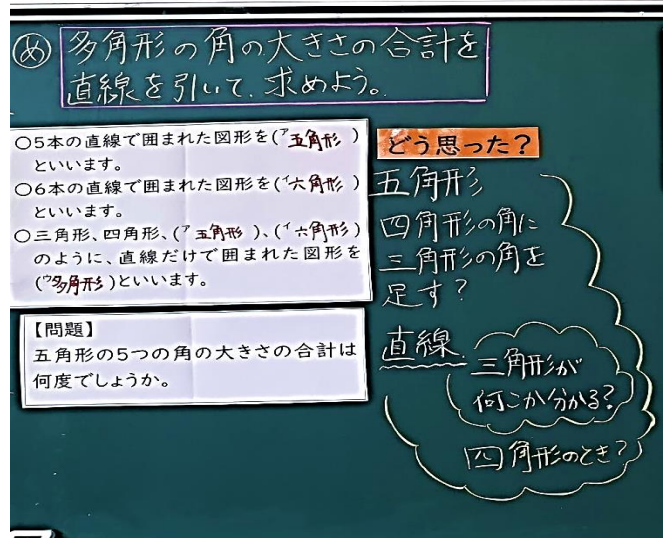 め 多角形の角の大きさの合計を
直線を引いて、求めよう。
○5本の直線で囲まれた図形を(ア 五角形 )
といいます。
○6本の直線で囲まれた図形を(イ 六角形 )
といいます。
○三角形、四角形、(ア 五角形 )、(イ 六角形)
のように、直線だけで囲まれた図形を
(ウ 多角形 )といいます。
【問題】
五角形の5つの角の大きさの合計は
何度でしょうか。
どう思った?
五角形
四角形の角に
三角形の角を
足す?
直線
三角形が
何こか分かる?
四角形のとき?